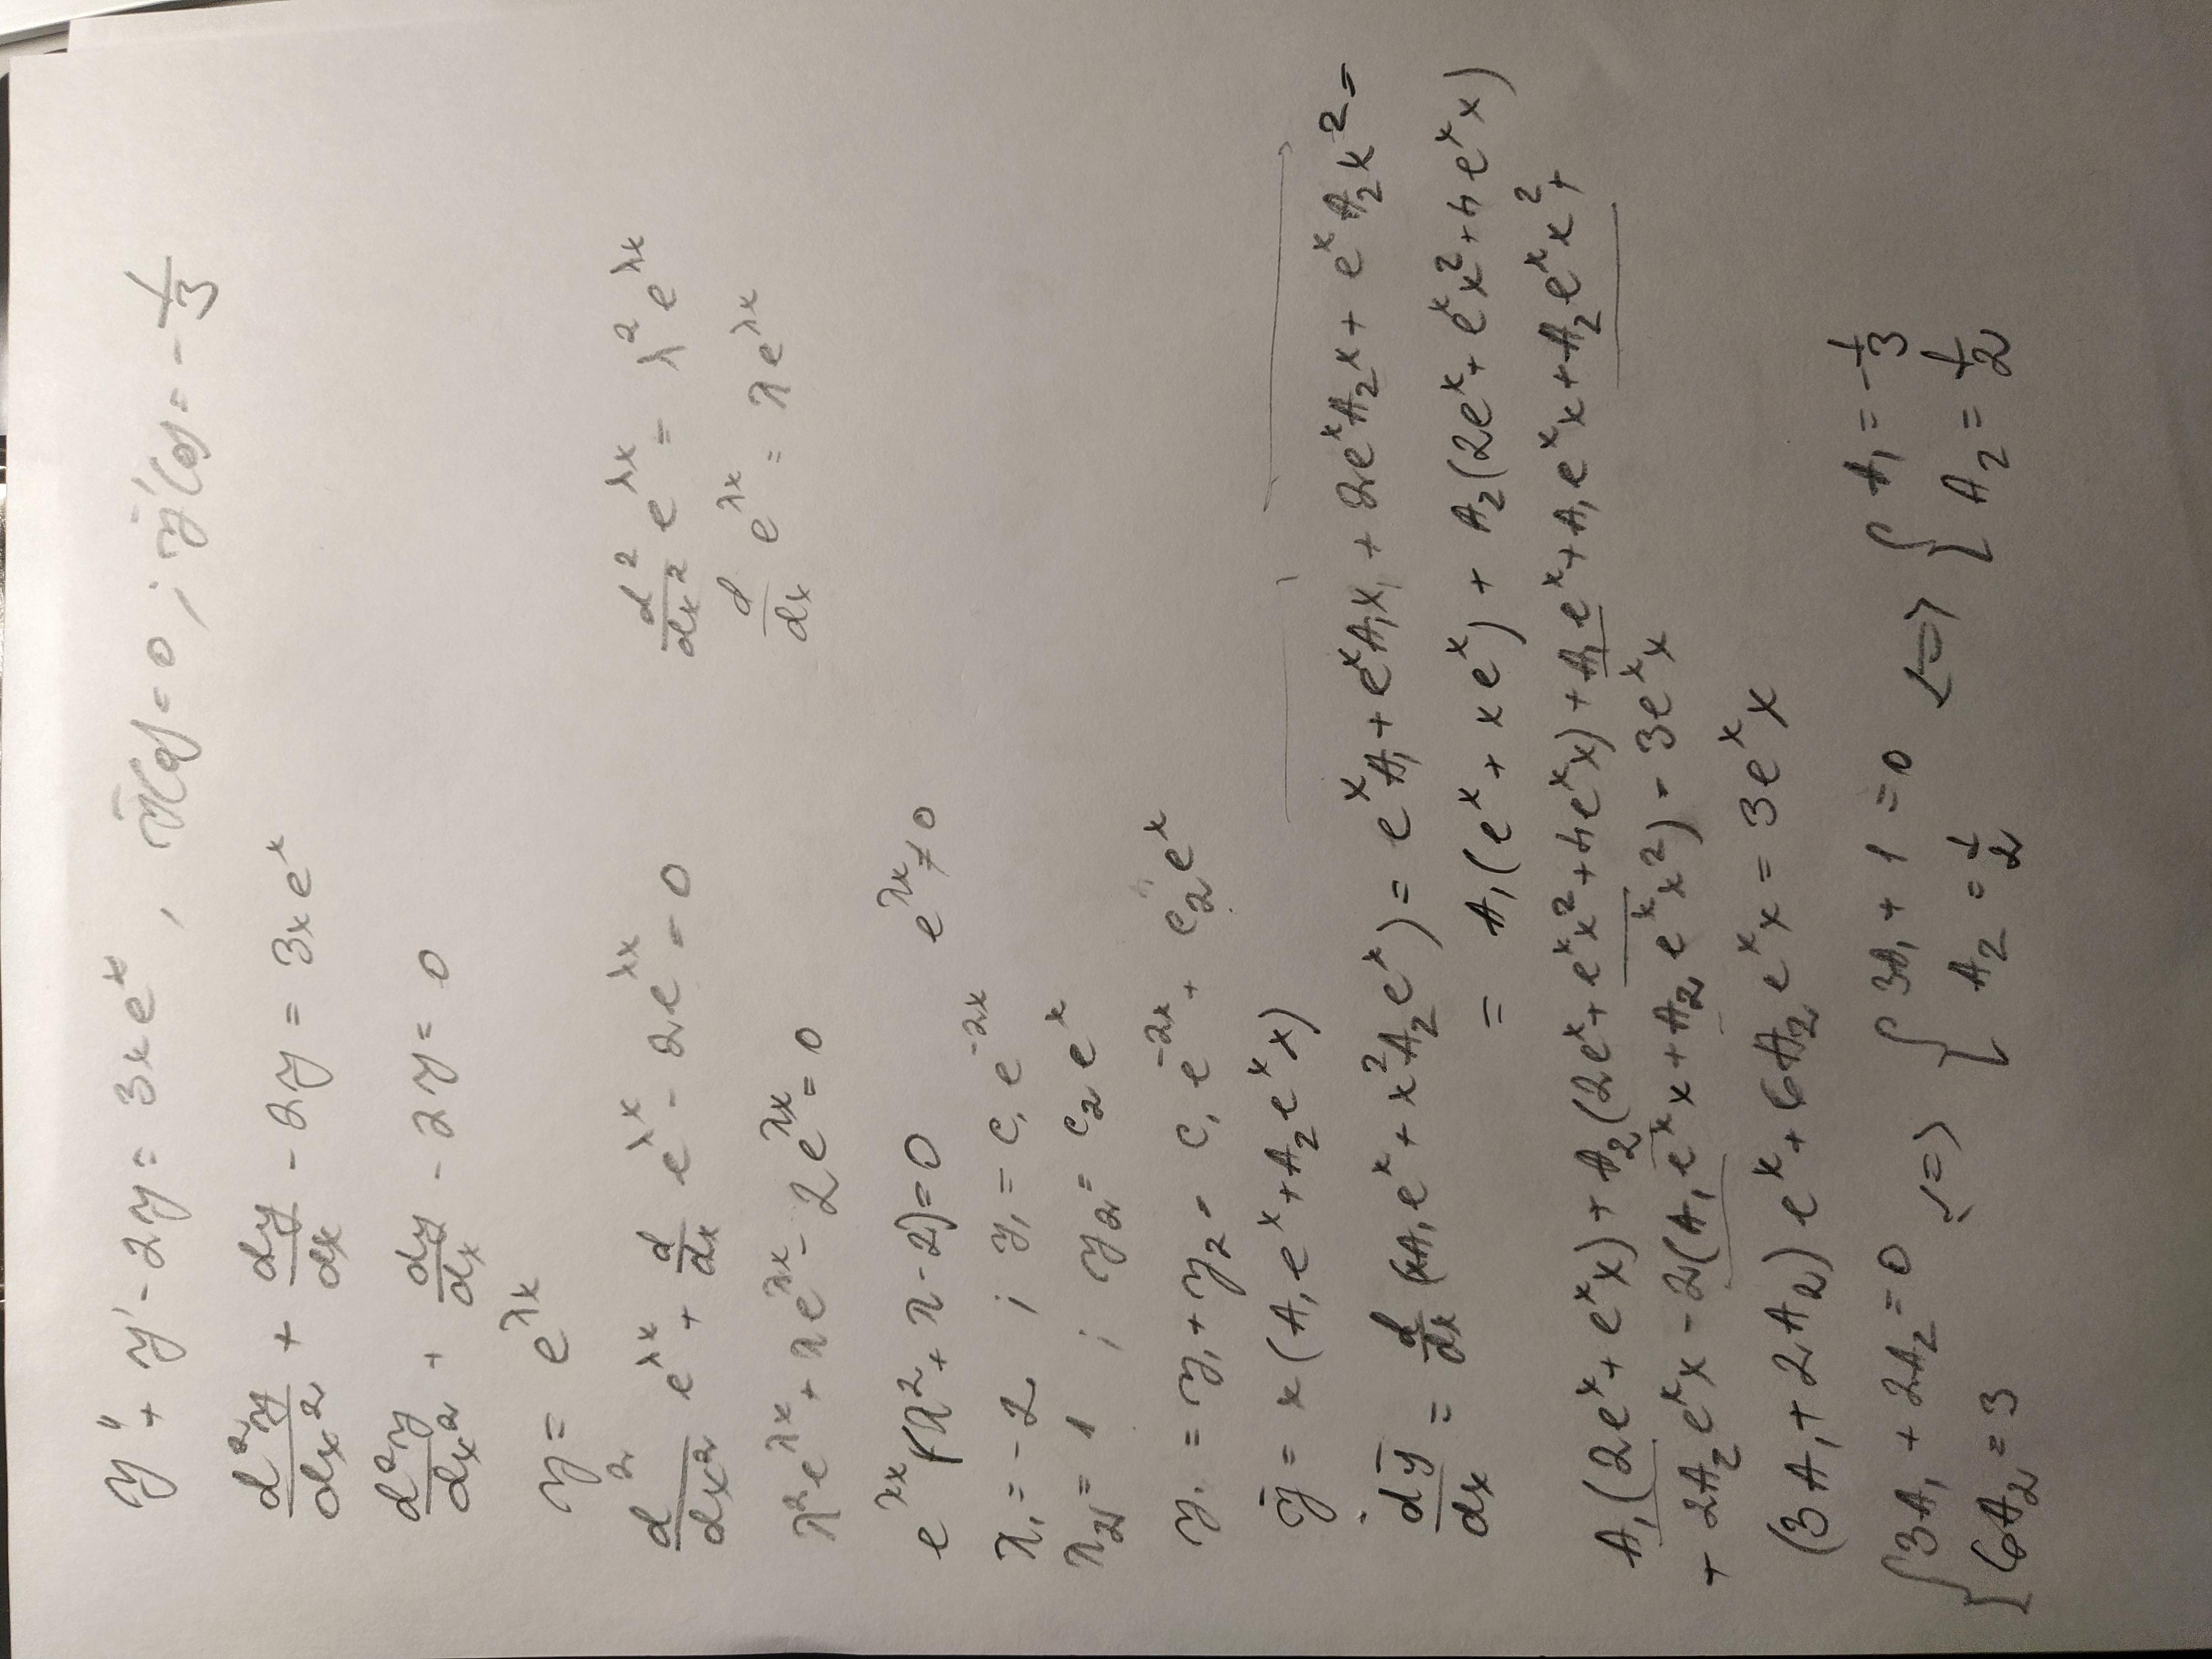 y'' + y' - 2y = 3xeˣ , y(0) = 0 ; y'(0) = -1/3
d²y/dx² + dy/dx - 2y = 3xeˣ
d²y/dx² + dy/dx - 2y = 0
y = e^λx
d²/dx² e^λx + d/dx e^λx - 2e^λx = 0
d²/dx² e^λx = λ² e^λx
λ²e^λx + λe^λx - 2e^λx = 0
d/dx e^λx = λe^λx
e^λx (λ² + λ - 2) = 0 e^λx ≠ 0
λ₁ = -2 ; y₁ = c₁ e^-2x
λ₂ = 1 ; y₂ = c₂ eˣ
y = y₁ + y₂ = c₁ e^-2x + c₂ eˣ
ȳ = x (A₁ eˣ + A₂ eˣ x)
dȳ/dx = d/dx (xA₁eˣ + x²A₂eˣ) = eˣA₁ + eˣA₁x + 2eˣA₂x + eˣA₂x² =
= A₁(eˣ + xeˣ) + A₂(2eˣ + eˣx² + 4eˣx)
A₁(2eˣ + eˣx) + A₂(2eˣ + eˣx² + 4eˣx) + A₁eˣ + A₁eˣx + A₂eˣx² +
+ 2A₂eˣx - 2(A₁eˣx + A₂eˣx²) = 3eˣx
(3A₁ + 2A₂)eˣ + 6A₂eˣx = 3eˣx
{ 3A₁ + 2A₂ = 0 <=> { 3A₁ + 1 = 0 <=> { A₁ = -1/3
{ 6A₂ = 3 A₂ = 1/2 A₂ = 1/2